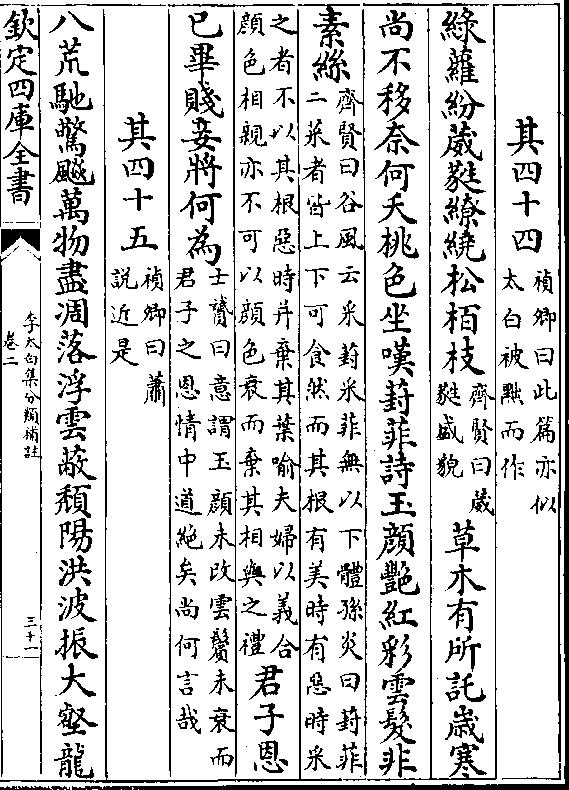 其四十四禎卿曰此篇亦似太白被黜而作
綠蘿紛葳蕤繚繞松栢枝齊賢曰葳蕤盛貌草木有所託歳寒
尚不移奈何夭桃色坐嘆葑菲詩玉顔艷紅彩雲髮非
素絲齊賢曰谷風云采葑采菲無以下體孫炎曰葑菲二菜者皆上下可食然而其根有美時有惡時采
之者不以其根惡時并棄其葉喻夫婦以義合顔色相親亦不可以顔色衰而棄其相與之禮君子恩
已畢賤妾將何為士贇曰意謂玉顔未改雲鬢未衰而君子之恩情中道絶矣尚何言哉
其四十五禎卿曰蕭說近是
八荒馳驚飈萬物盡凋落浮雲蔽頽陽洪波振大壑龍
欽定四庫全書
李太白集分類補註
卷二
三十一